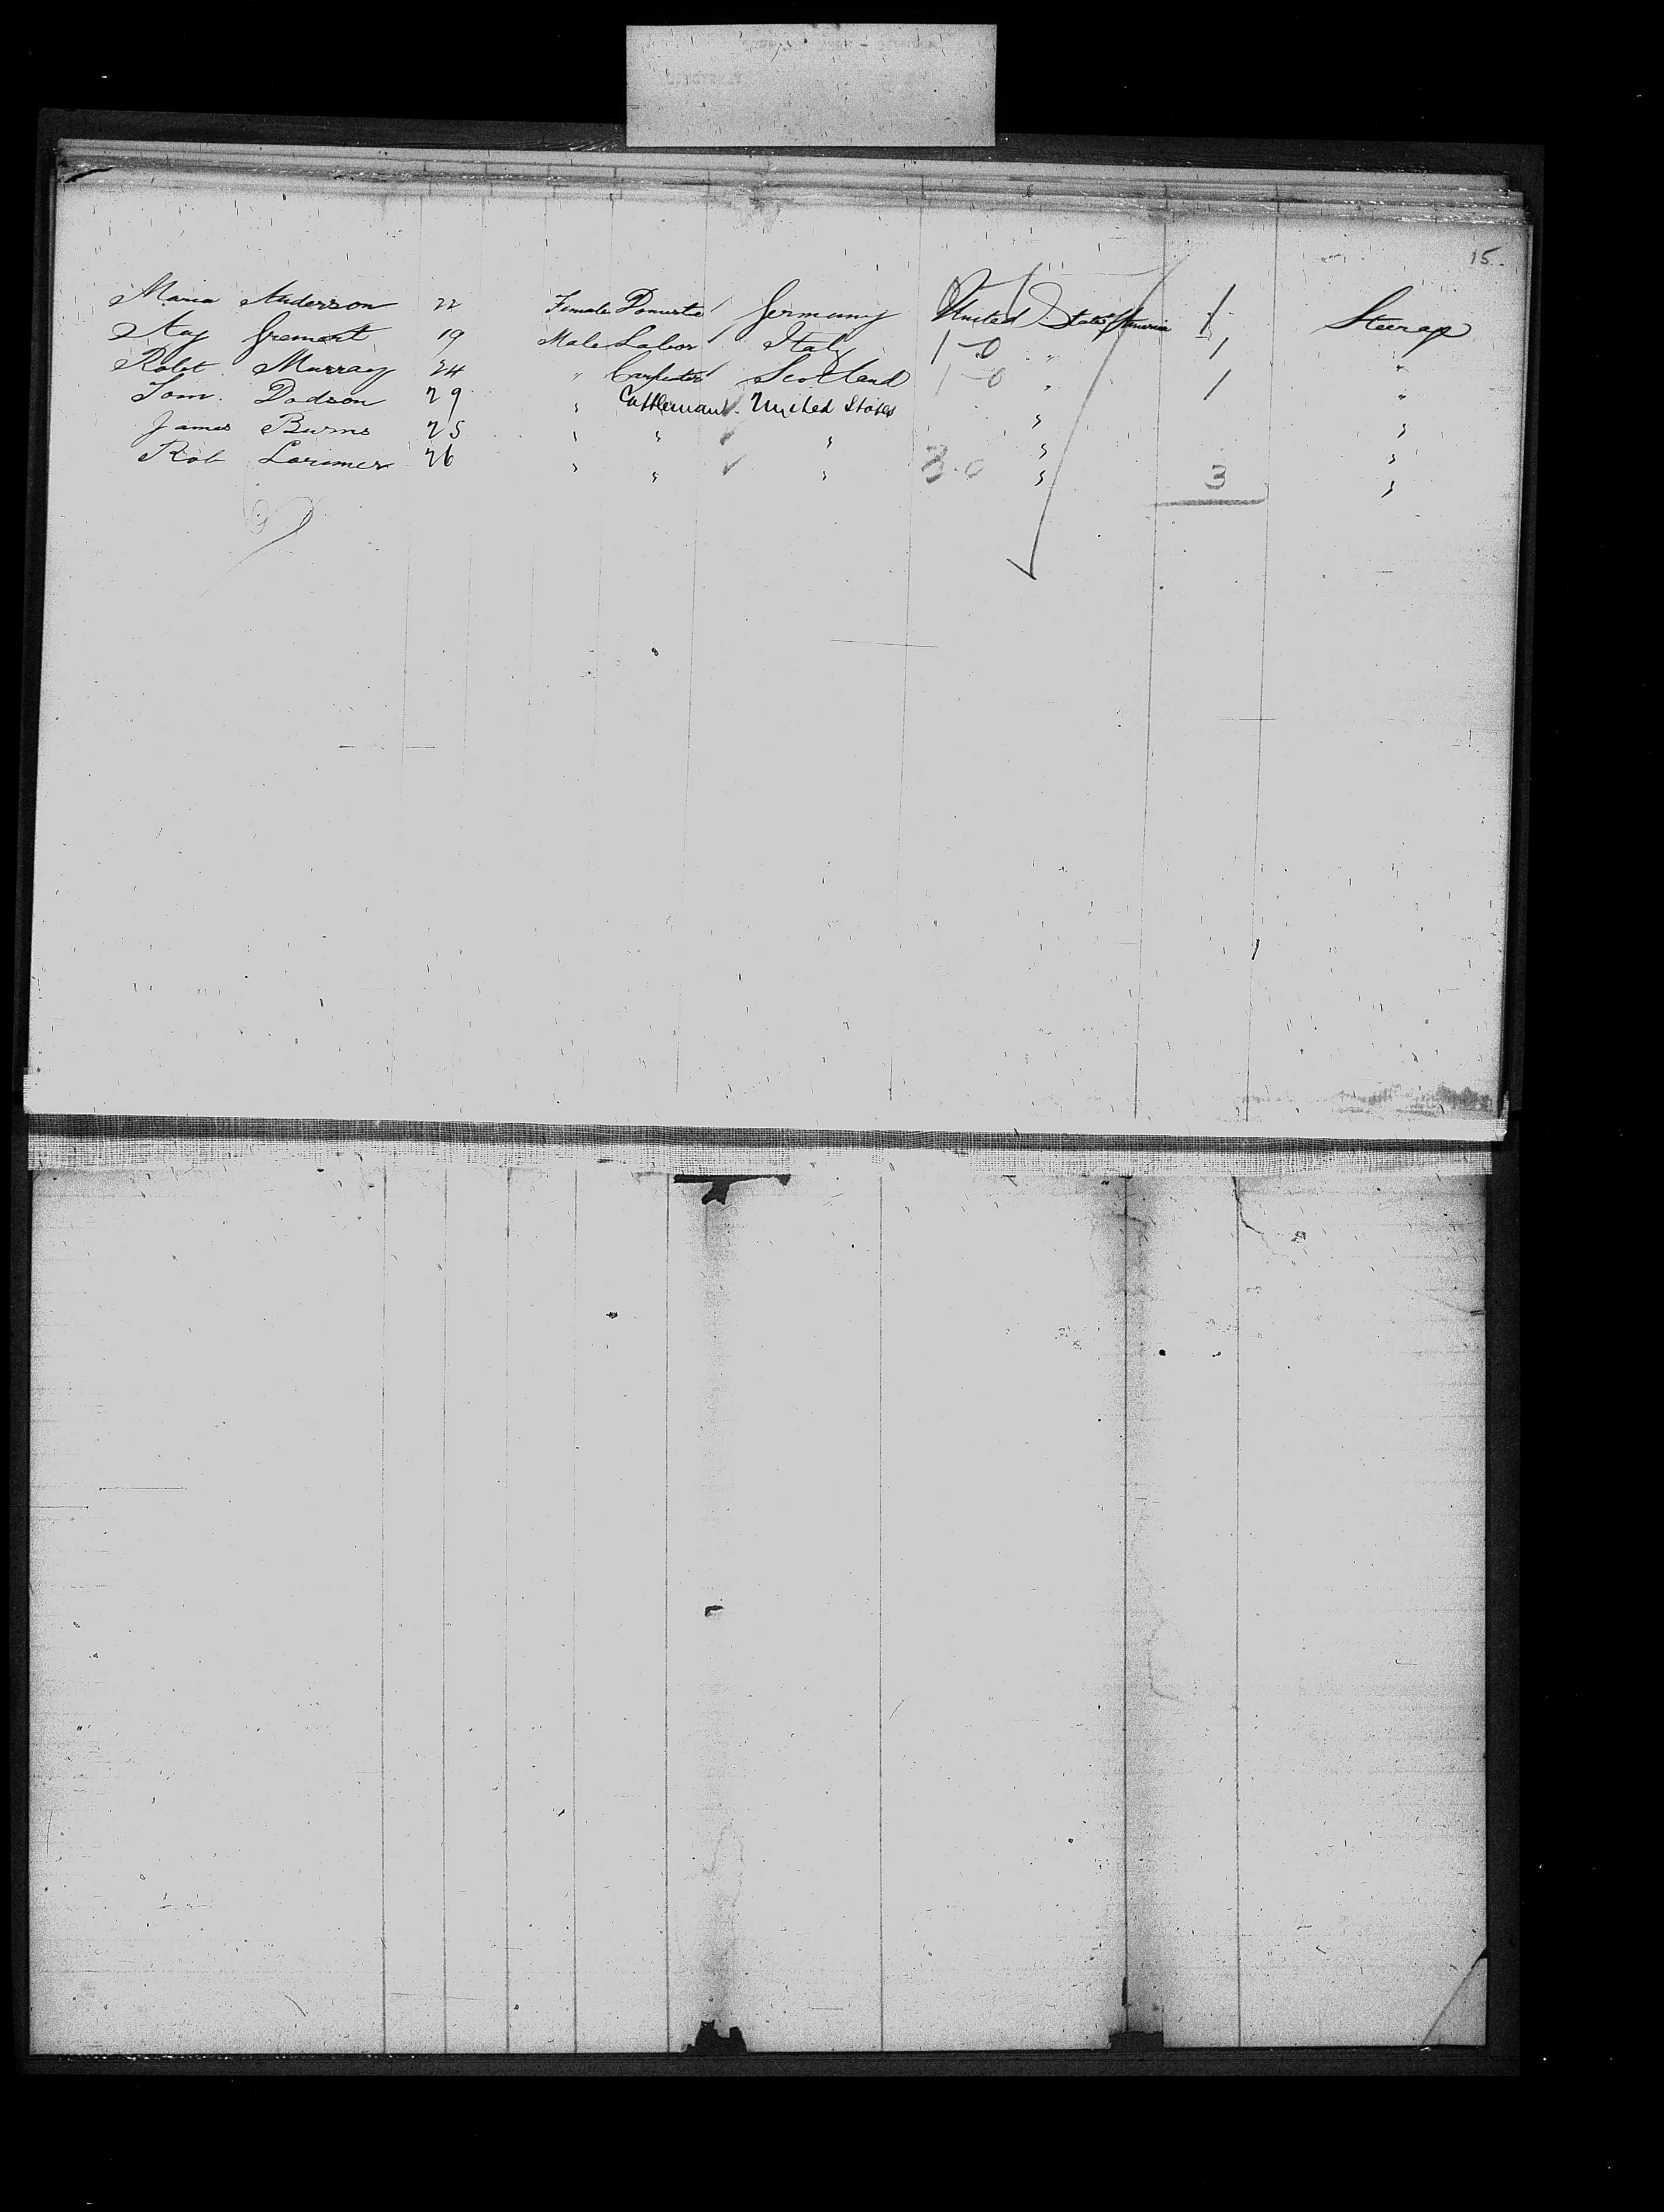 15.
Maria Anderson 22 Female Domestic Germany United States America 1 Steerage
May Gremart 19 Male Labor Italy 1-0 " 1 "
Robt Murray 24 " Carpenter Scotland 1-0 " 1 "
Tom. Dodson 29 " Cattleman United States " "
James Burns 25 " " " " "
Rob Lorimer 26 " " " 3-0 " 3 "